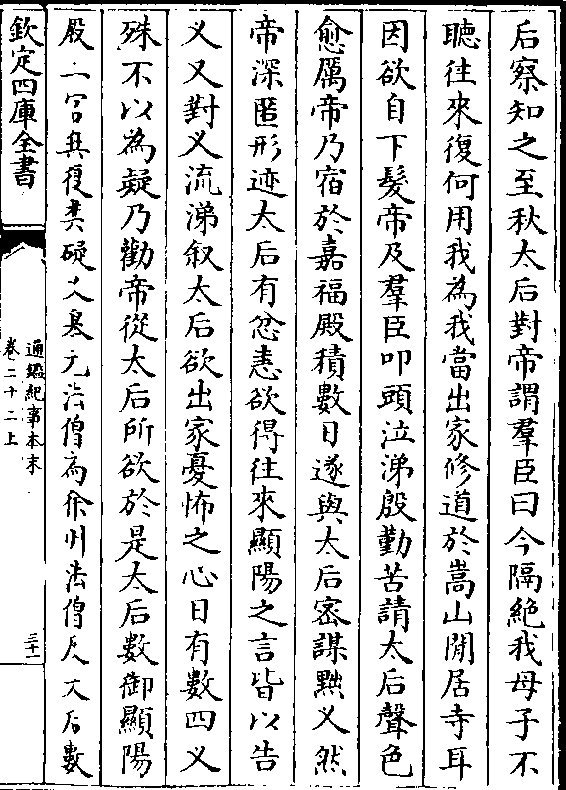 后察知之至秋太后對帝謂羣臣曰今隔絶我母子不
聽往來復何用我為我當出家修道於嵩山閒居寺耳
因欲自下髮帝及羣臣叩頭泣涕殷勤苦請太后聲色
愈厲帝乃宿於嘉福殿積數日遂與太后密謀黜义然
帝深匿形迹太后有忿恚欲得往來顯陽之言皆以告
义又對义流涕叙太后欲出家憂怖之心日有數四义
殊不以為疑乃勸帝從太后所欲於是太后數御顯陽
殿二宫無復禁礙义舉元法僧為徐州法僧反太后數
欽定四庫全書
通鑑紀事本末
卷二十二上
三十一